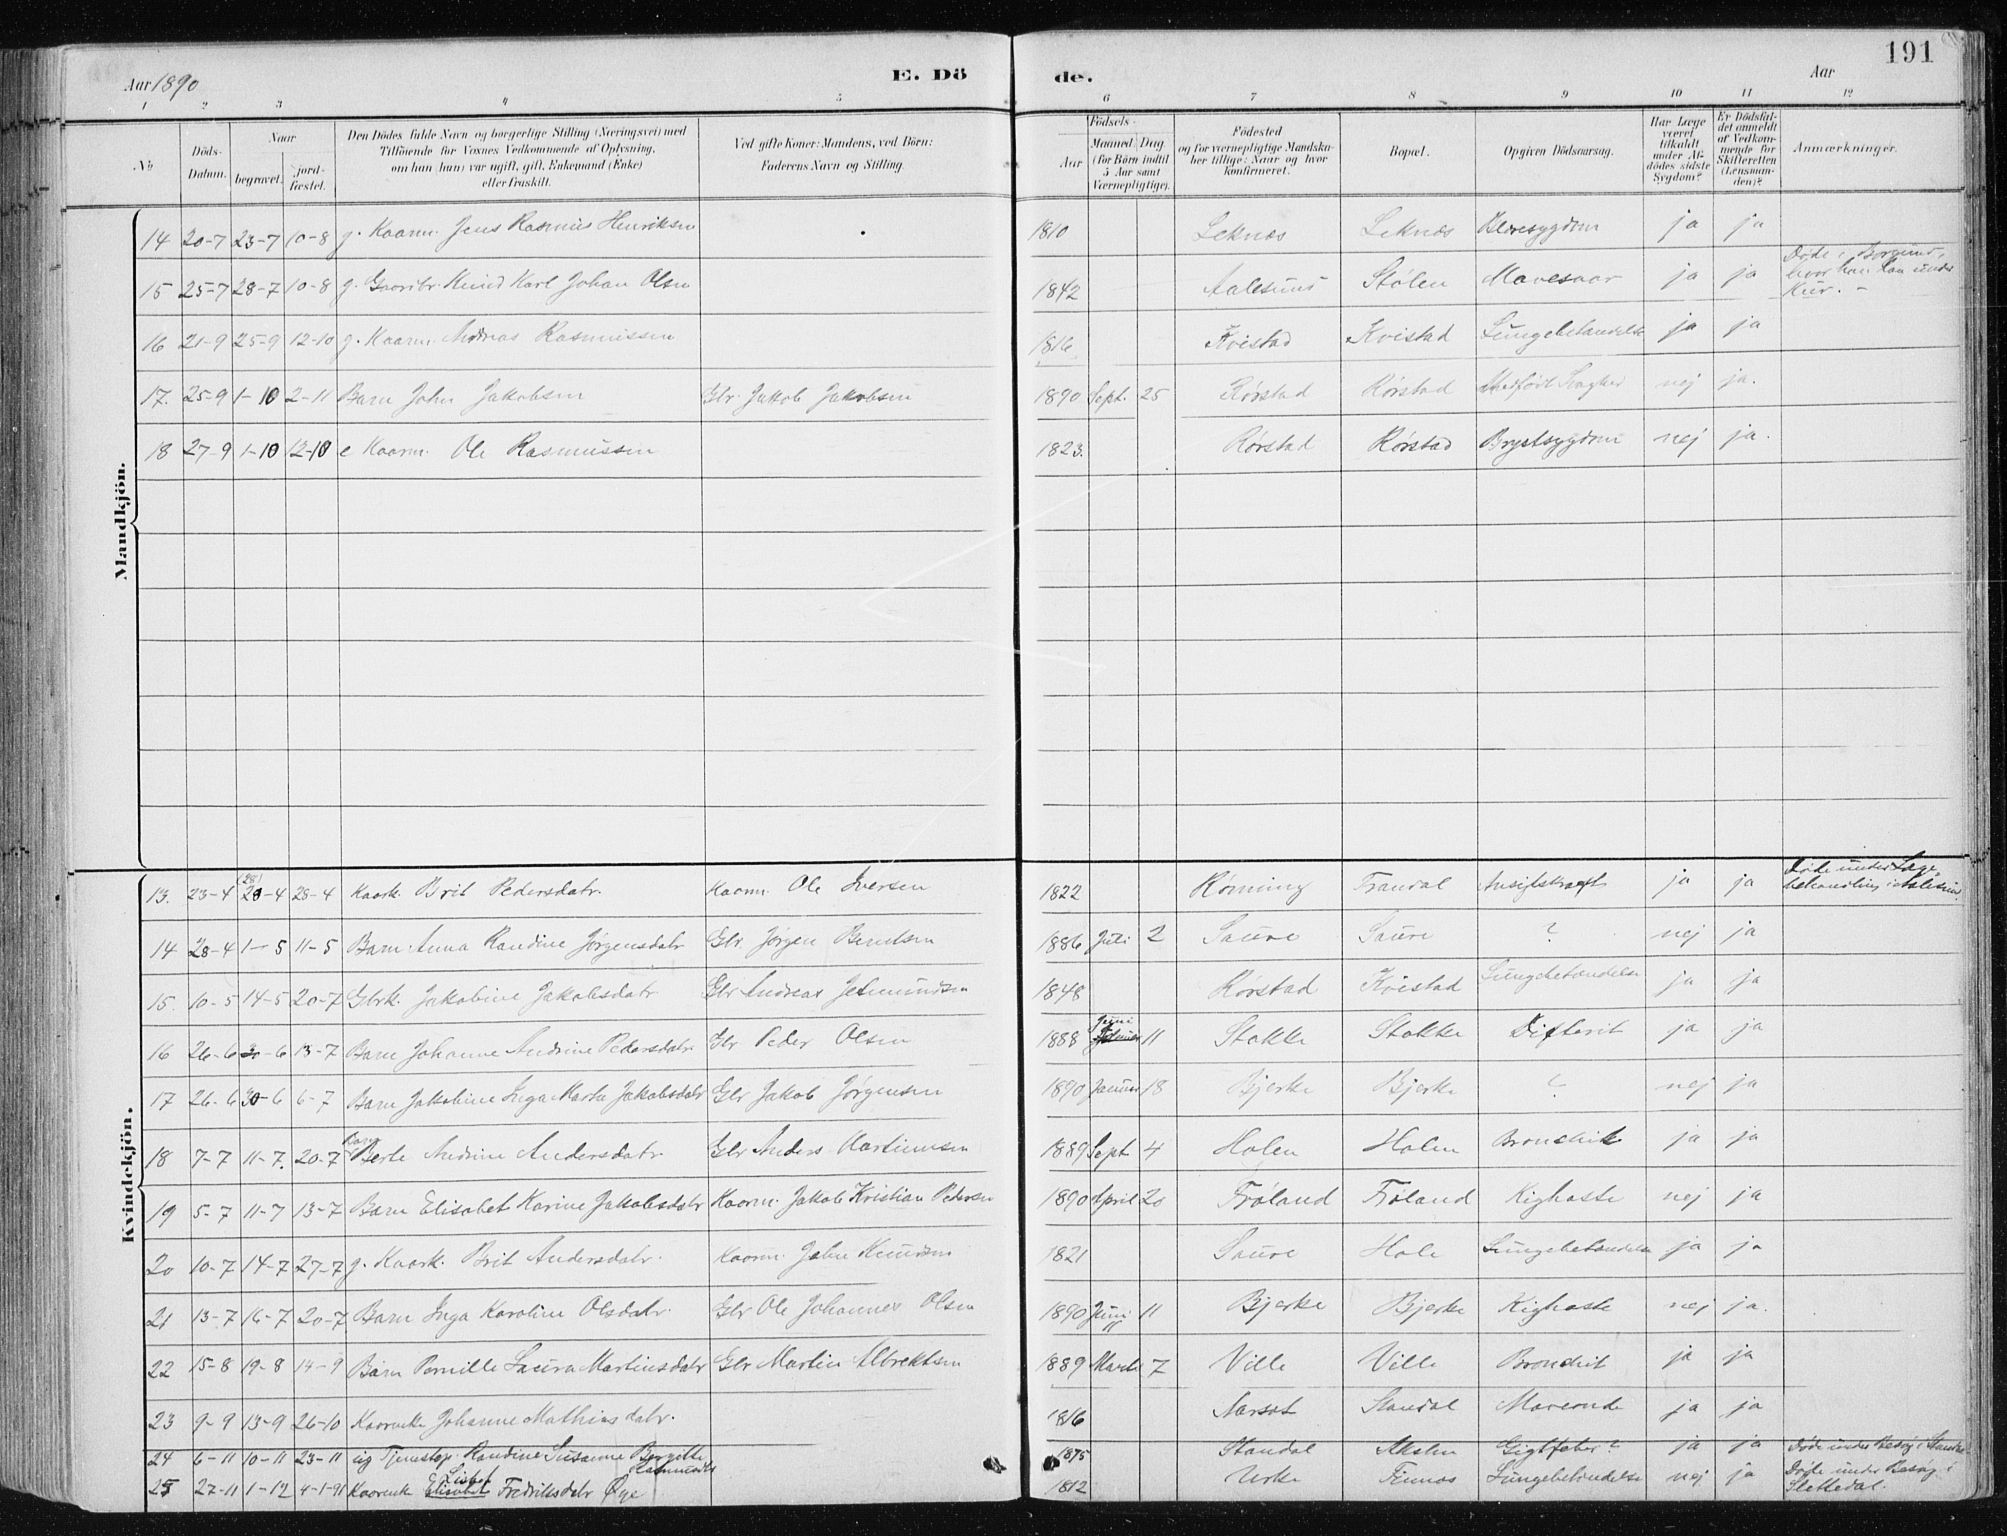 191
Aar 1890 E. Dö de. Aar
1 2 3 4 5 6 7 8 9 10 11 12
No
Döds-Datum.
Naar
begravet.
jord-fæstet.
Den Dödes fulde Navn og borgerlige Stilling (Næringsvei) med
Tilföiende for Voxnes Vedkommende af Oplysning,
om han (hun) var ugift, gift, Enkemand (Enke)
eller fraskilt.
Ved gifte Koner: Mandens, ved Börn:
Faderens Navn og Stilling.
Födsels-
Aar
Maaned. Dag
(for Börn indtil
5 Aar samt
Værnepligtige).
Födested
og for værnepligtige Mandska-
ber tillige: Naar og hvor
konfirmeret.
Bopæl.
Opgiven Dödsaarsag.
Har Læge
været
tilkaldt
under Af-
dödes sidste
Sygdom?
Er Dödsfal-
det anmeldt
af Vedkom-
mende for
Skifteretten
(Lensman-
den)?
Anmærkninger.
Mandkjön.
14 20-7 23-7 10-8 g. Kaarm. Jens Rasmus Henriksen 1810 Leknæs Leknæs Blæresygdom ja ja
15 25-7 28-7 10-8 g. Gaardbr. Knud Karl Johan Olsen 1842 Aalesund Stølen Mavesaar ja ja Døde i Borgund, hvor han laa under Kur. -
16 21-9 25-9 12-10 g. Kaarm. Andreas Rasmussen 1816 Kvistad Kvistad Lungebetændelse ja ja
17. 25-9 1-10 2-11 Barn John Jakobsen Gbr. Jakob Jakobsen 1890 Sept. 25 Rørstad Rørstad Medfødt Svaghed nej ja.
18 27-9 1-10 12-10 e Kaarm. Ole Rasmussen 1823. Rørstad Rørstad Brystsygdom nej ja.
Kvindekjön.
13. 23-4 28-4 (28) 28-4 Kaark. Brit Pedersdatr. Kaarm. Ole Iversen 1822 Rørning Trandal Ansigtskræft ja ja Døde under Læge-behandling i Aalesund
14 28-4 1-5 11-5 Barn Anna Randine Jørgensdatr Gbr. Jørgen Berntsen 1886 Juli 2 Saure Saure ? nej ja
15. 10-5 14-5 20-7 Gbrk. Jakobine Jakobsdatr Gbr Andreas Jetmundsen 1848 Rørstad Kvistad Lungebetændelse ja ja
16 26-6 30-6 13-7 Barn Johanne Andrine Pedersdatr Gbr Peder Olsen 1888 Juni 11 Stokke Stokke Difterit ja ja
17 26-6 30-6 6-7 Barn Jakobine Inga Marta Jakobsdatr Gbr Jakob Jørgensen 1890 Januar 18 Bjerke Bjerke ? nej ja
18 7-7 11-7. 20-7 Barn Berte Andrine Andersdatr Gbr Anders Martinussen 1889 Sept 4 Holen Holen Bronchit ja ja
19 5-7 11-7 13-7 Barn Elisabet Karine Jakobsdatr Kaarm. Jakob Kristian Pedersen 1890 April 20 Frøland Frøland Kighoste nej ja
20 10-7 14-7 27-7 g. Kaark. Brit Andersdatr. Kaarm. John Knudsen 1821 Saure Hole Lungebetændelse ja ja
21 13-7 16-7 20-7 Barn Inga Karoline Olsdatr. Gbr Ole Johannes Olsen 1890 Juni 11 Bjerke Bjerke Kighoste nej ja.
22 15-8 19-8 14-9 Barn Pernille Laura Martinsdatr Gbr Martin Albrektsen 1889 Marts 7 Ville Ville Bronchit ja ja
23 9-9 13-9 26-10 Kaarenke Johanne Mathiasdatr. 1816 Aarsæt Standal Maveonde ja ja
24 6-11 10-11 23-11 ug Tjenestep. Randine Susanne Bergitte Rasmusdtr 1875 Standal Akslen Gigtfeber? ja ja Døde under Besøg i Standal
25 27-11 1-12 4-1-91 Kaarenke Elisabet Lisbet Fredriksdatr Øye 1812 Urke Finnes Lungebetændelse nej ja Døde under Besøg i Slettedal.